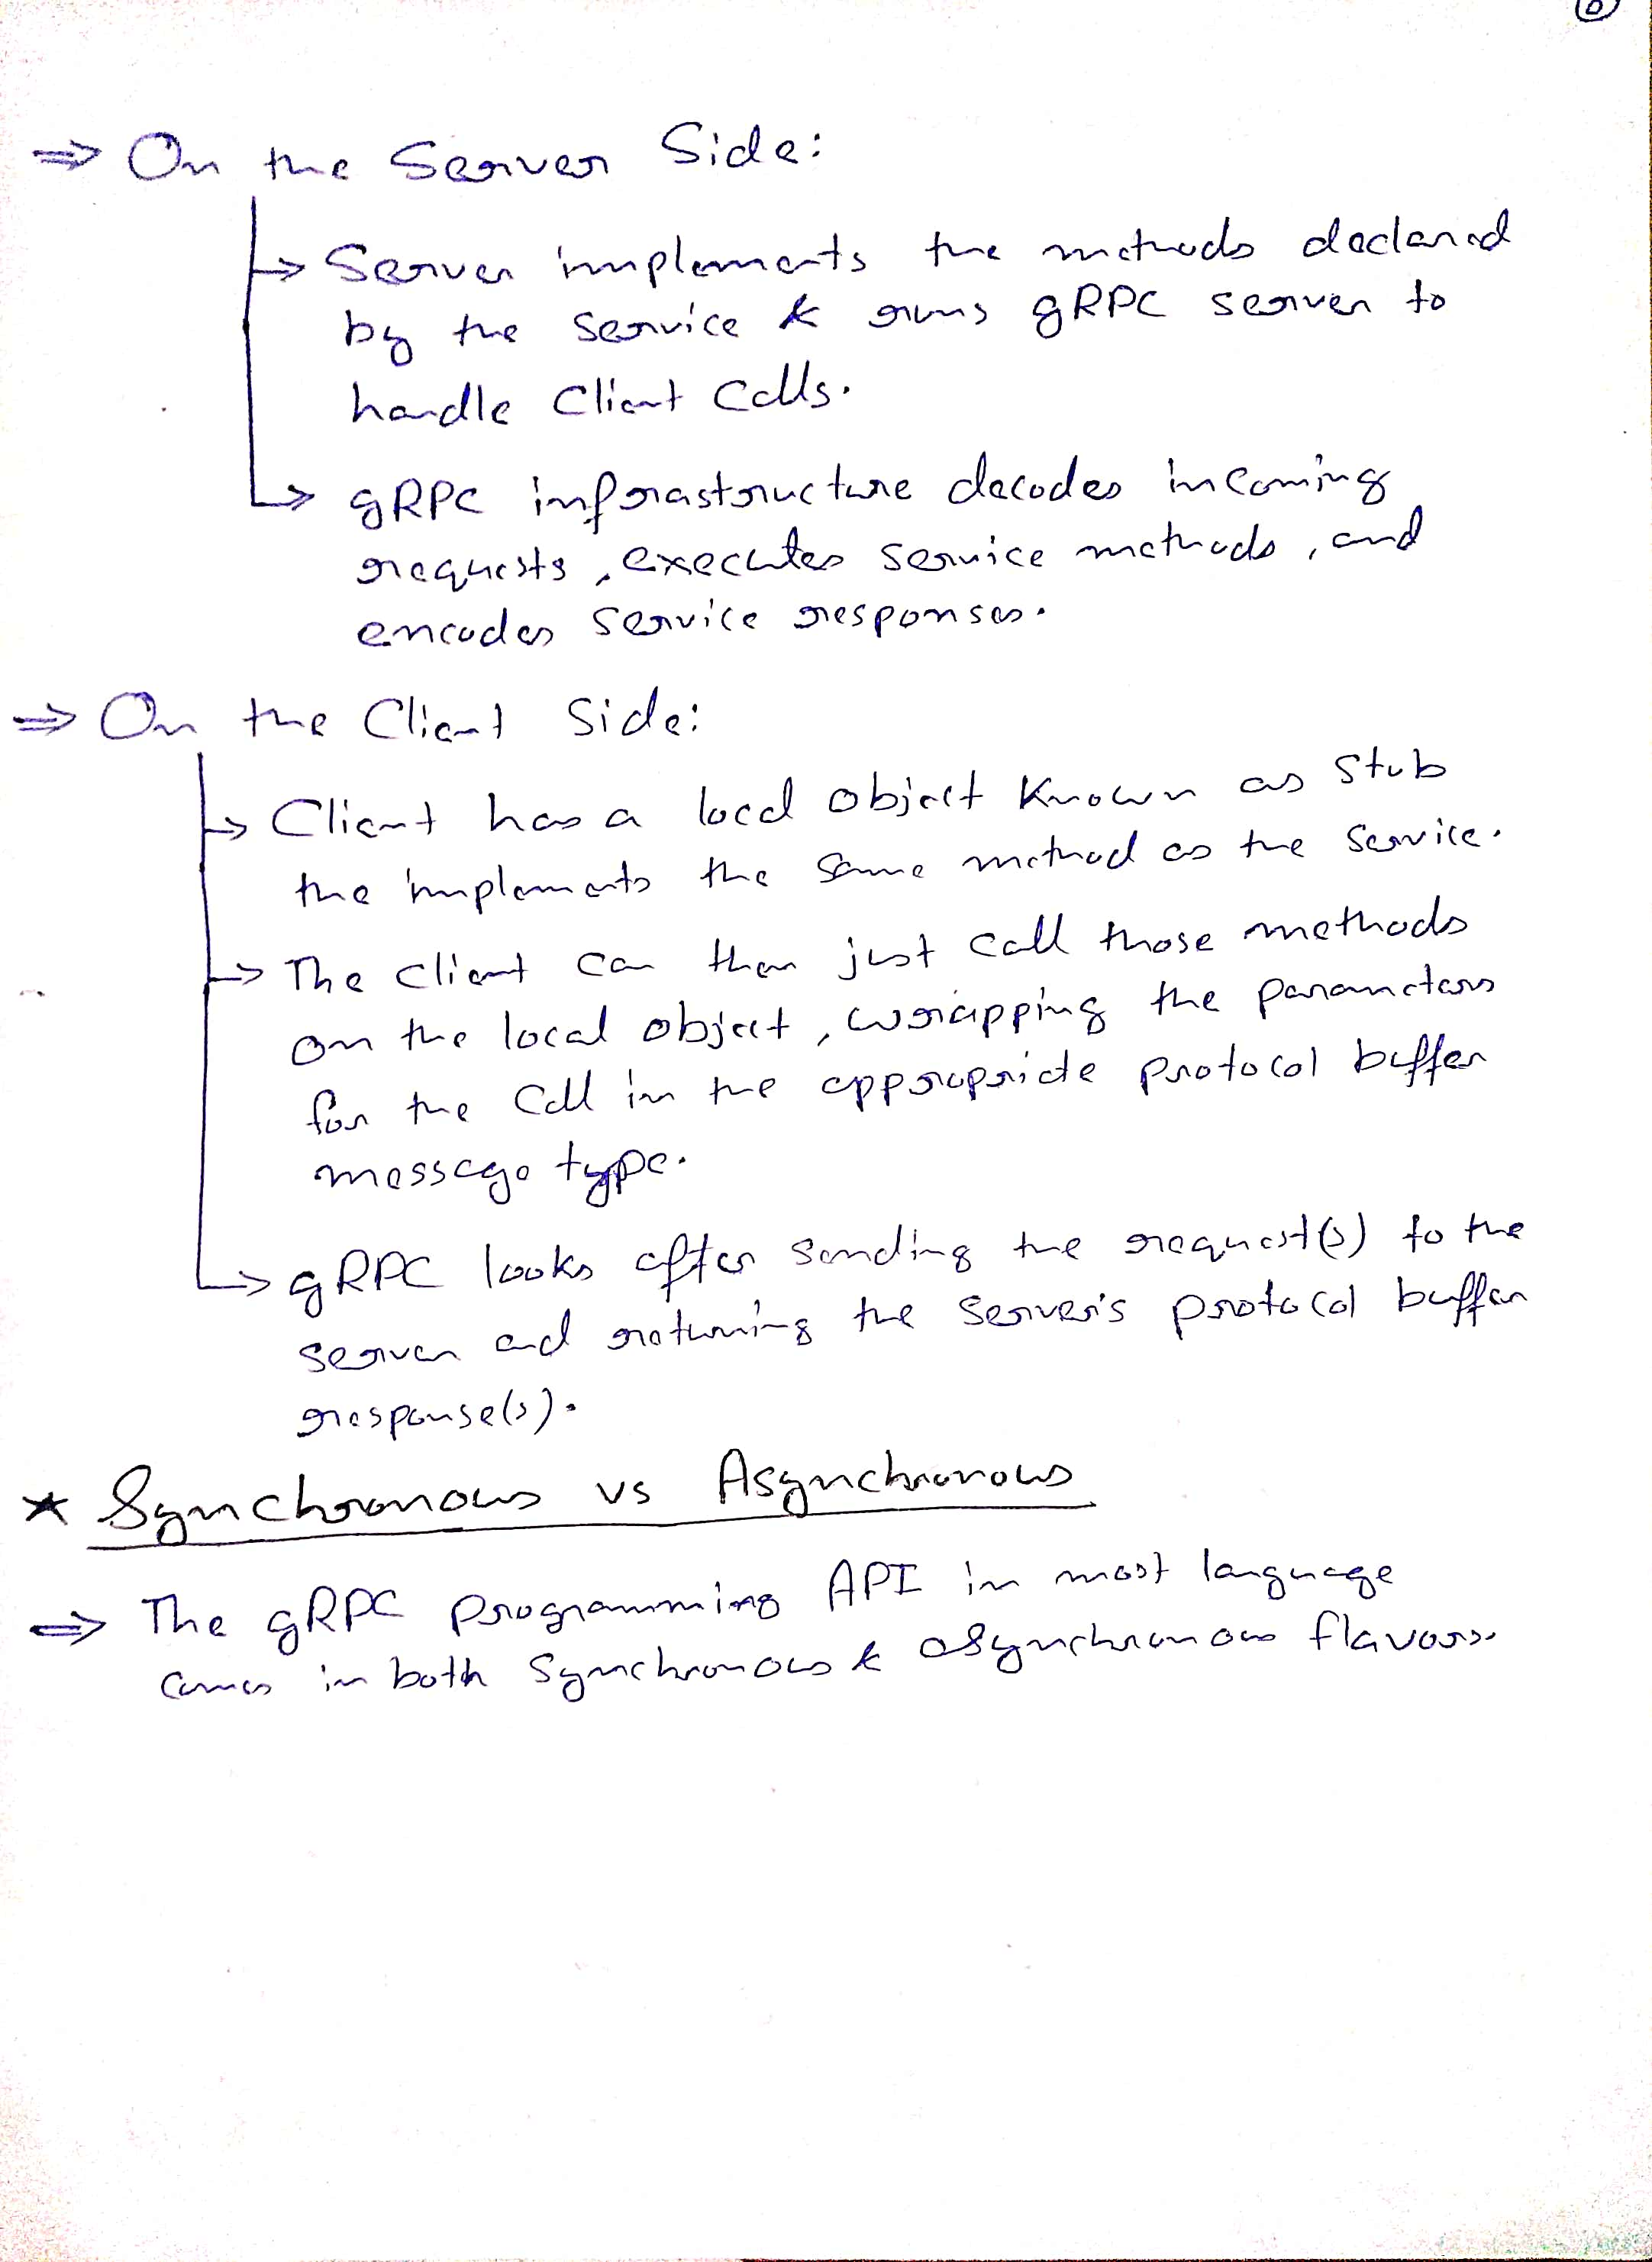 ⇒ On the Server Side:
↳ Server implements the methods declared
by the service & runs gRPC server to
handle Client Calls.
↳ gRPC infrastructure decodes incoming
requests, executes service methods, and
encodes service responses.
⇒ On the Client Side:
↳ Client has a local object Known as Stub
the implements the same method as the service.
↳ The client can then just call those methods
on the local object, wrapping the parameters
for the call in the appropriate protocol buffer
message type.
↳ gRPC looks after sending the request(s) to the
server and returning the server's protocol buffer
response(s).
★ Synchronous vs Asynchronous
⇒ The gRPC programming API in most language
comes in both synchronous & asynchronous flavors.